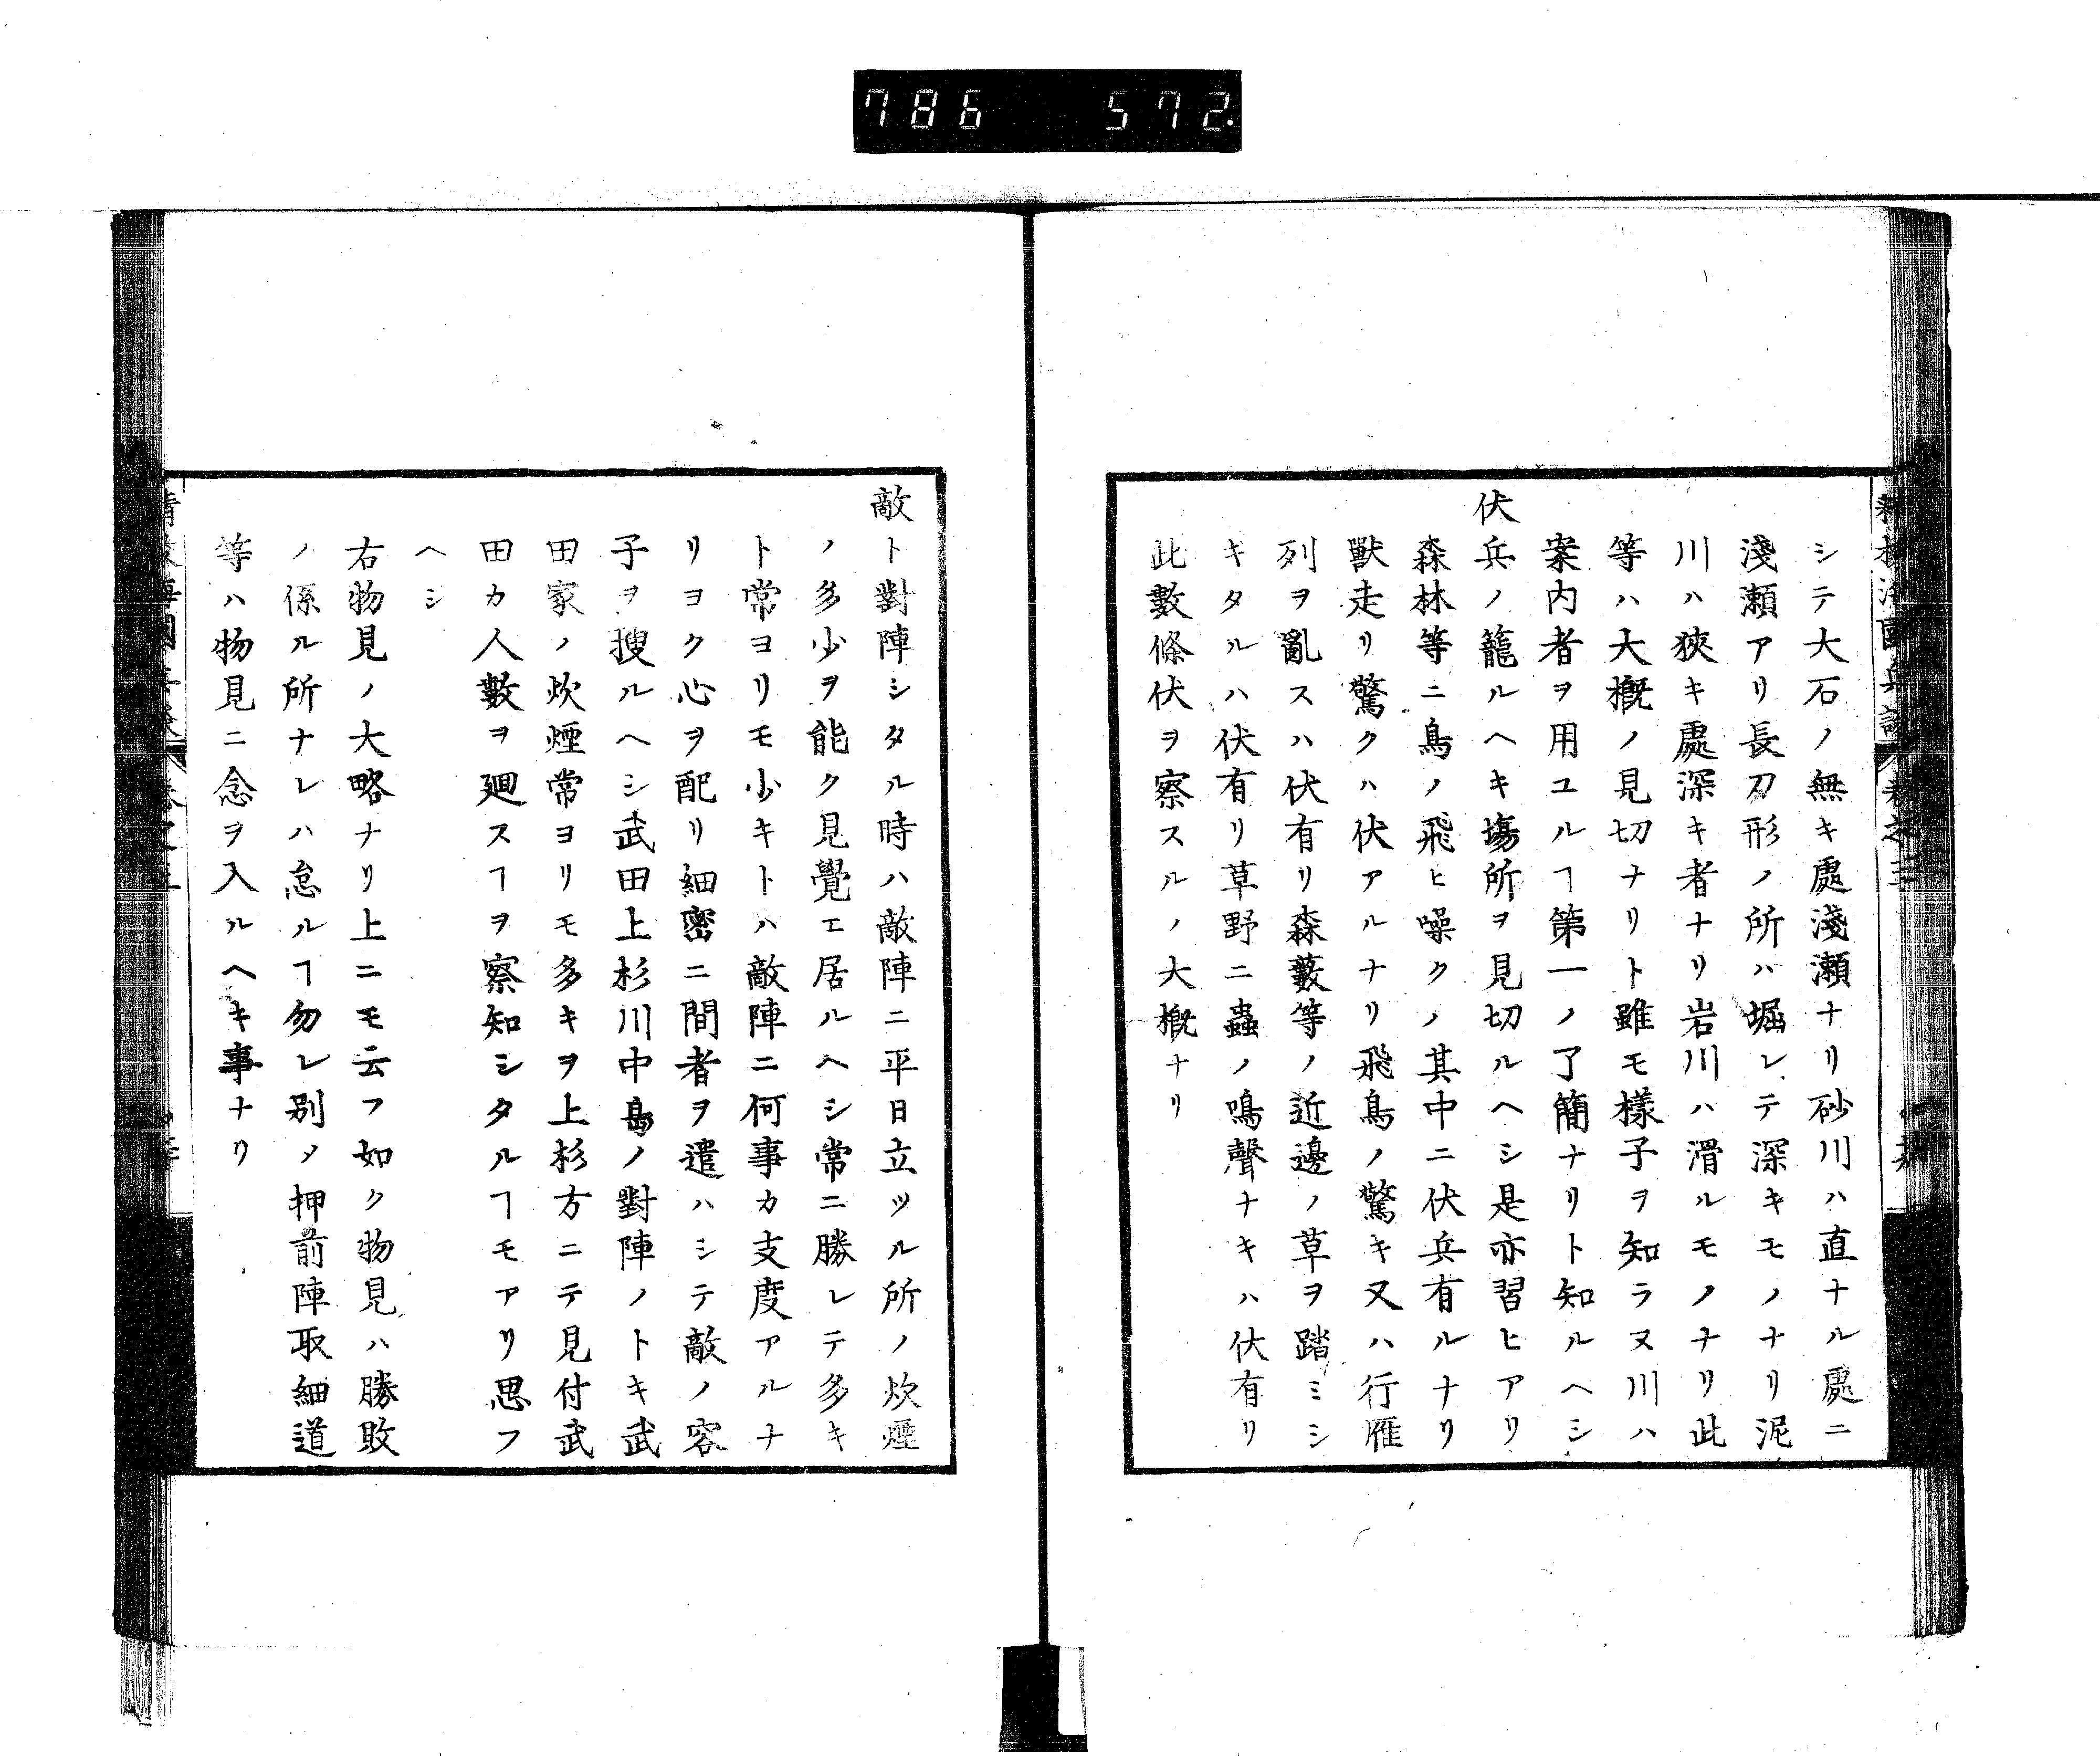 786 572.
シテ大石ノ無キ處淺瀬ナリ砂川ハ直ナル處ニ
淺瀬アリ長刀形ノ所ハ堀レテ深キモノナリ泥
川ハ狹キ處深キ者ナリ岩川ハ滑ルモノナリ此
等ハ大概ノ見切ナリト雖モ樣子ヲ知ラヌ川ハ
案内者ヲ用ユルヿ第一ノ了簡ナリト知ルヘシ
伏兵ノ籠ルヘキ塲所ヲ見切ルヘシ是亦習ヒアリ
森林等ニ鳥ノ飛ヒ噪クノ其中ニ伏兵有ルナリ
獸走リ驚クハ伏アルナリ飛鳥ノ驚キ又ハ行雁
列ヲ亂スハ伏有リ森藪等ノ近邊ノ草ヲ踏ミシ
キタルハ伏有リ草野ニ蟲ノ鳴聲ナキハ伏有リ
此數條伏ヲ察スルノ大概ナリ
敵ト對陣シタル時ハ敵陣ニ平日立ツル所ノ炊煙
ノ多少ヲ能ク見覺エ居ルヘシ常ニ勝レテ多キ
ト常ヨリモ少キトハ敵陣ニ何事カ支度アルナ
リヨク心ヲ配リ細密ニ間者ヲ遣ハシテ敵ノ容
子ヲ搜ルヘシ武田上杉川中島ノ對陣ノトキ武
田家ノ炊煙常ヨリモ多キヲ上杉方ニテ見付武
田カ人數ヲ廻スヿヲ察知シタルヿモアリ思フ
ヘシ
右物見ノ大略ナリ上ニモ云フ如ク物見ハ勝敗
ノ係ル所ナレハ怠ルヿ勿レ別ノ押前陣取細道
等ハ物見ニ念ヲ入ルヘキ事ナリ